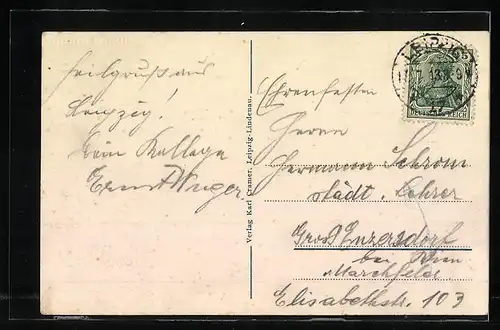 Heilgruß aus
Leipzig!
Dein Kollege
Ernst Unger
Verlag Karl Cramer, Leipzig-Lindenau.
LEIPZIG
DEUTSCHES REICH
Ehrenfesten
Herrn
Hermann Schrom
städt. Lehrer
Groß Enzersdorf
bei Wien
Marchfeld
Elisabethstr. 103